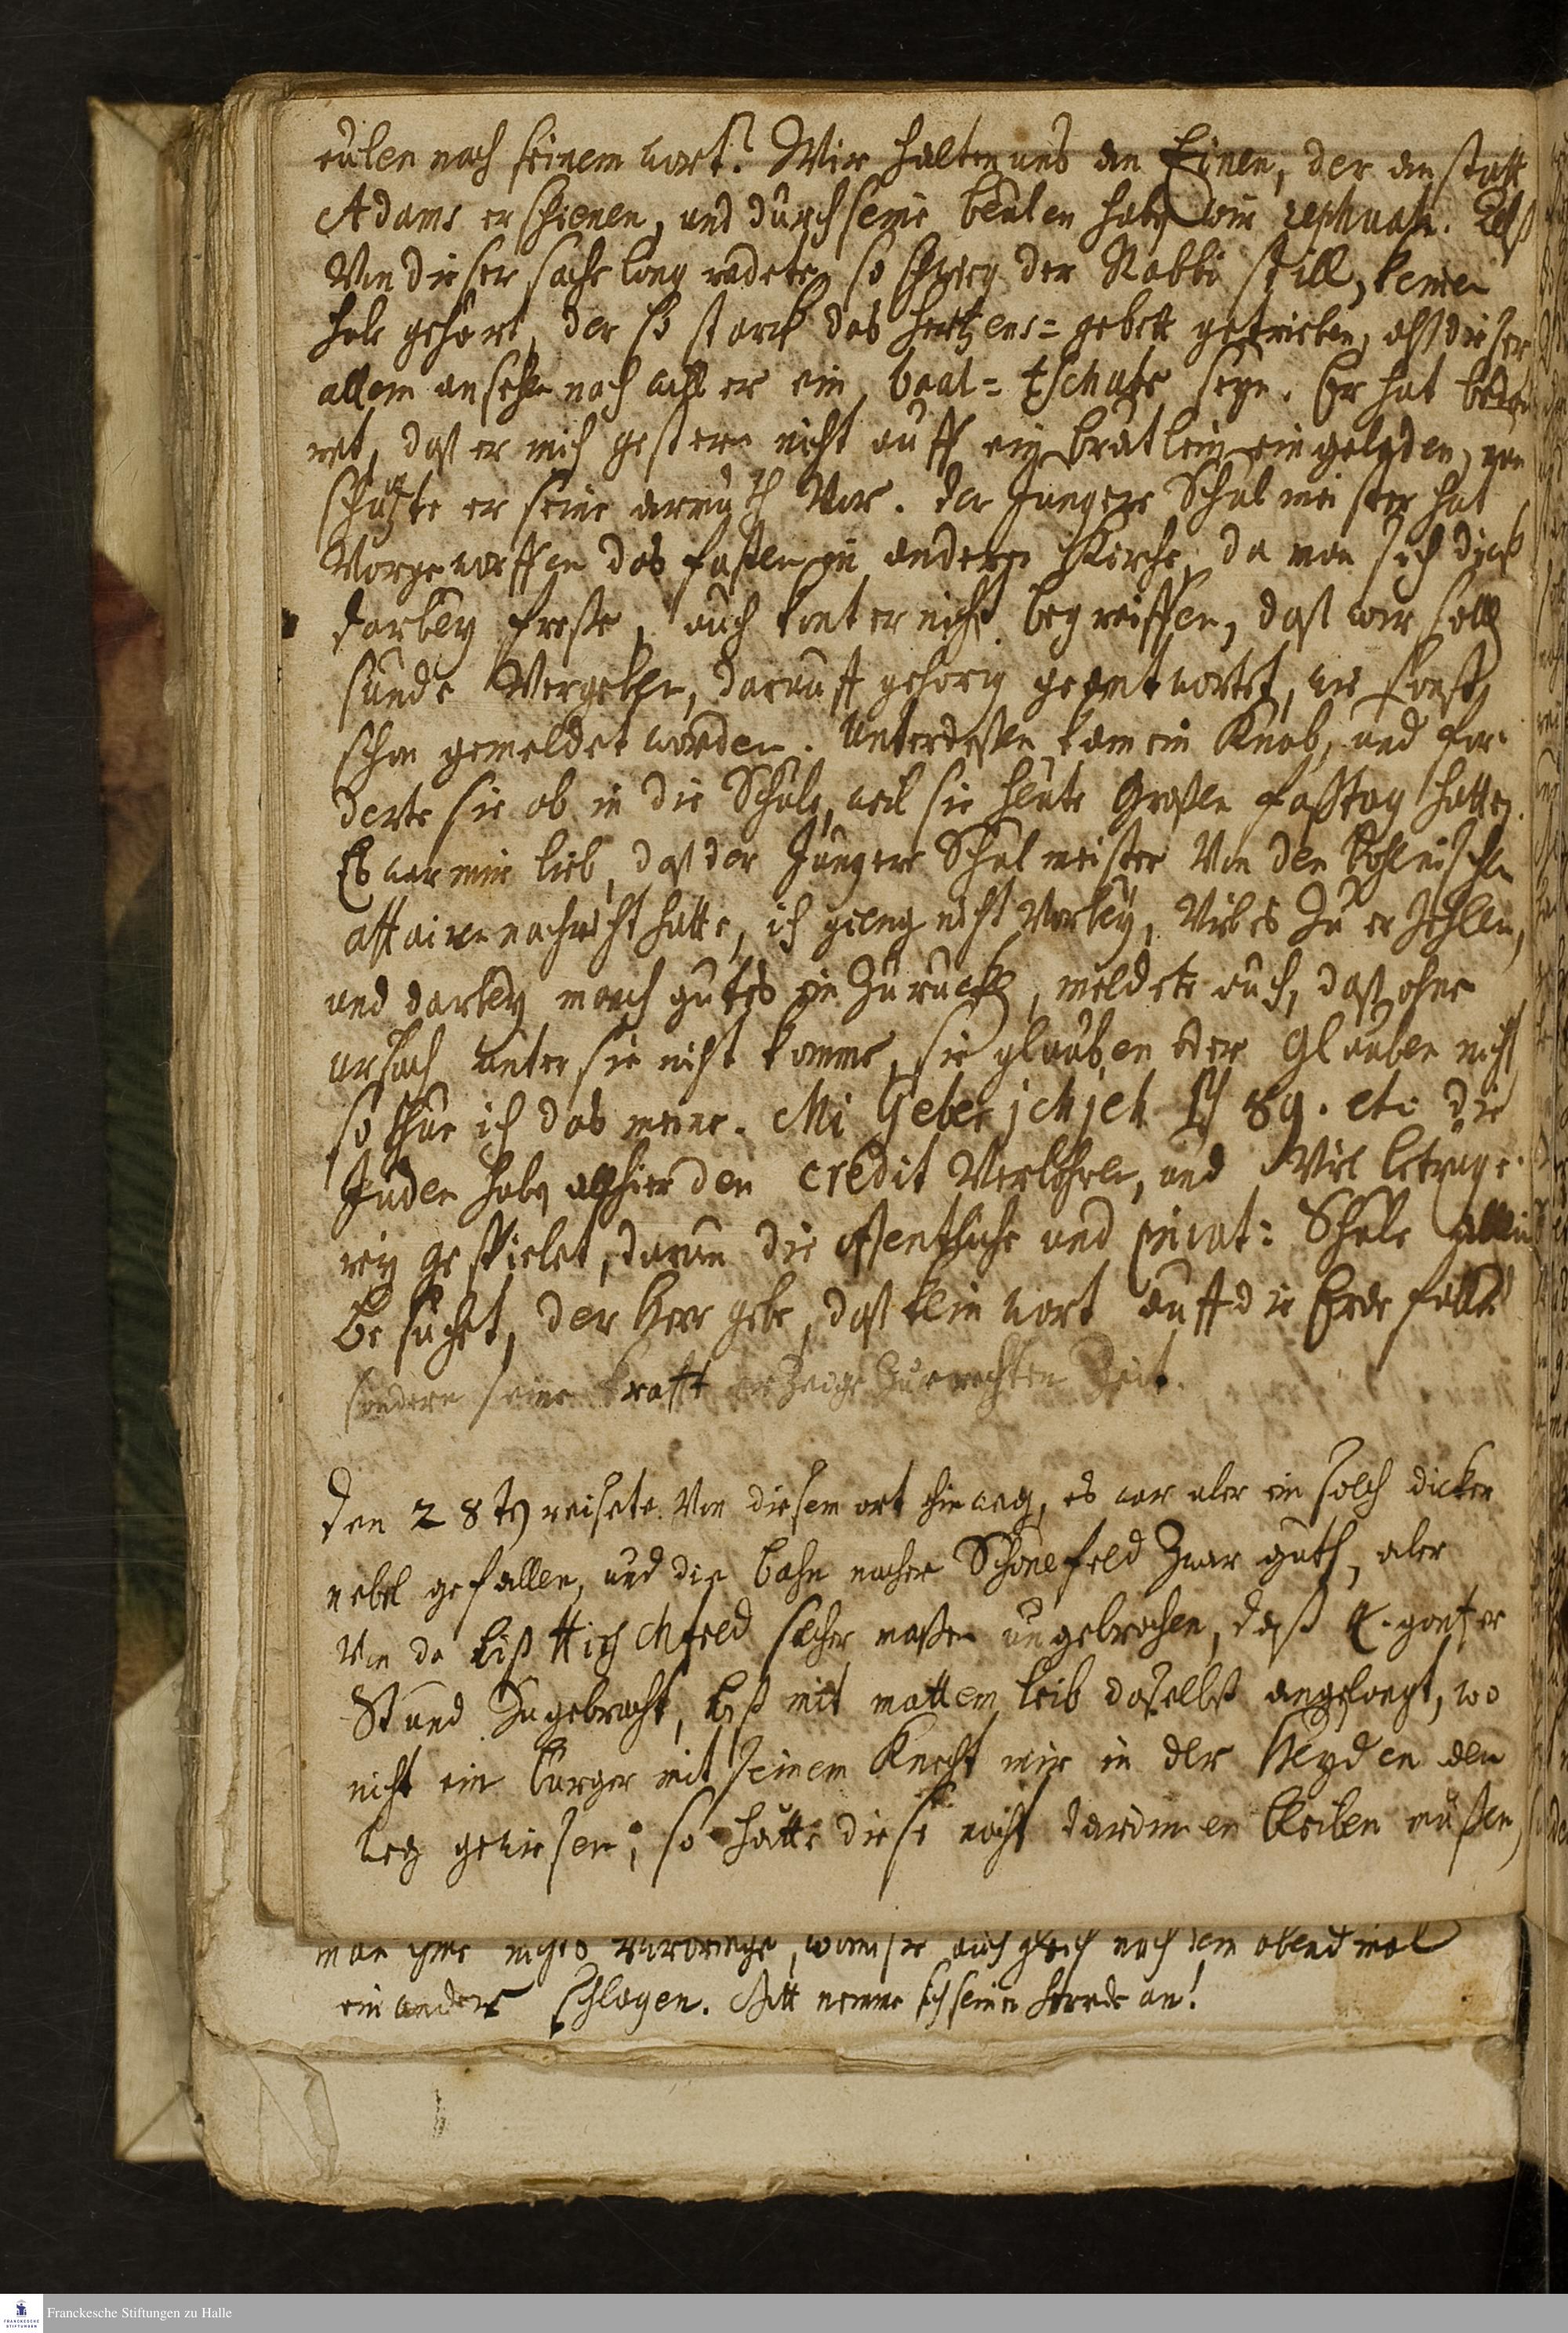 eulen nach seinem wort? Wir halten uns an Einen, der anstatt
Adams erschienen, und durch seine beulen haben wir rephuah. Als
Von dieser sache lang redete, so schwieg der Rabbi still, keinen
habe gehört, der so starck das Hertzens-gebett getrieben, als dieser
allem ansehen nach will er ein baal-tschube seyn. Er hat
ret, daß er mich gestern nicht auff ein brätlein eingeladen,
schützte er seine armuth Vor. Der Jungere Schulmeister hat
Vorgeworffen das fasten in anderer Kirche, da man sich dick
darbey freße, auch konte er nicht begreiffen, daß wir
sunde Vergeben, darauff gehörig geantwortet, wie sonst
schon gemeldet worden. Unterdeßen kam ein Knab, und for-
derte sie ab in die Schule, weil sie heute Großen fasttag hatten.
Es war mir lieb, daß der Jungere Schulmeister Von den
affairen nachricht hatte, ich gieng nicht Vorbey, Vieles zu erzehlen,
und darbey manch gutes ein zurucken, meldete auch, daß ohne
ursach unter sie nicht komme, sie glauben oder glauben nicht
so thue ich das meine. Mi Geber jchjeh Ps 89. etc die
Juden haben allhier den credit Verlohren, und Viel betruge-
rey gespielet, darum die offentliche und privat: Schule allein
besuchet, der Herr gebe, daß kein wort auff die Erde falle
sondern seine krafft erzeige zur rechten Zeit.
Den 28ten reisete Von diesem ort hinweg, es war aber ein solch dicker
nebel gefallen, und die bahn nacher Schönefeld zwar guth, aber
Von da biß solcher maßen ungebrochen, daß 4. gantzer
Stund zugebracht, biß mit mattem leib daselbst angelangt, wo
nicht ein burger mit seinem Knecht mir in der Heyden den
weg gewiesen, so hätte diese nacht darinnen bleiben müßen,
man ihme nichts vorbringe, wann sie auch gleich nach dem abendmal
einander schlagen. Gott nemme sich seiner Heerde an!
Franckesche Stiftungen zu Halle